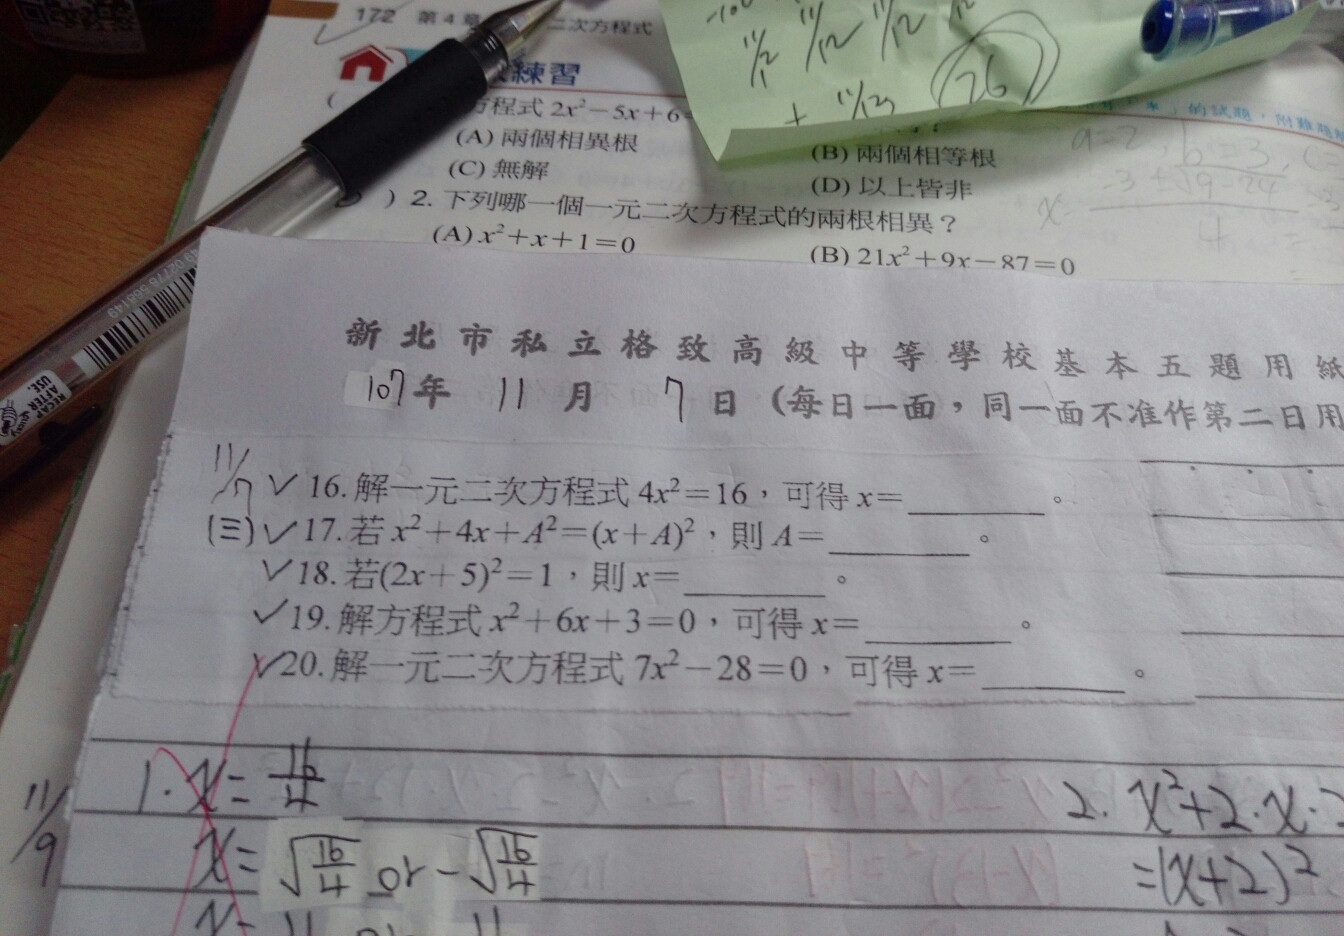 172 第4章 二次方程式
練習
方程式 2x²−5x+6=
(A) 兩個相異根
(B) 兩個相等根
(C) 無解
(D) 以上皆非
) 2. 下列哪一個一元二次方程式的兩根相異？
(A) x²+x+1=0
(B) 21x²+9x−87=0
11/12 11/12
+ 11/13
26
的試題，附難題
新北市私立格致高級中等學校基本五題用紙
107年 11月 7日（每日一面，同一面不准作第二日用
11/7 ✓ 16. 解一元二次方程式 4x²=16，可得 x=______。
(三) ✓ 17. 若 x²+4x+A²=(x+A)²，則 A=______。
✓ 18. 若(2x+5)²=1，則 x=______。
✓ 19. 解方程式 x²+6x+3=0，可得 x=______。
✓ 20. 解一元二次方程式 7x²−28=0，可得 x=______。
11/9
1. x= 16/4
2. x²+2·x·2
x= √16/4 or −√16/4
=(x+2)²